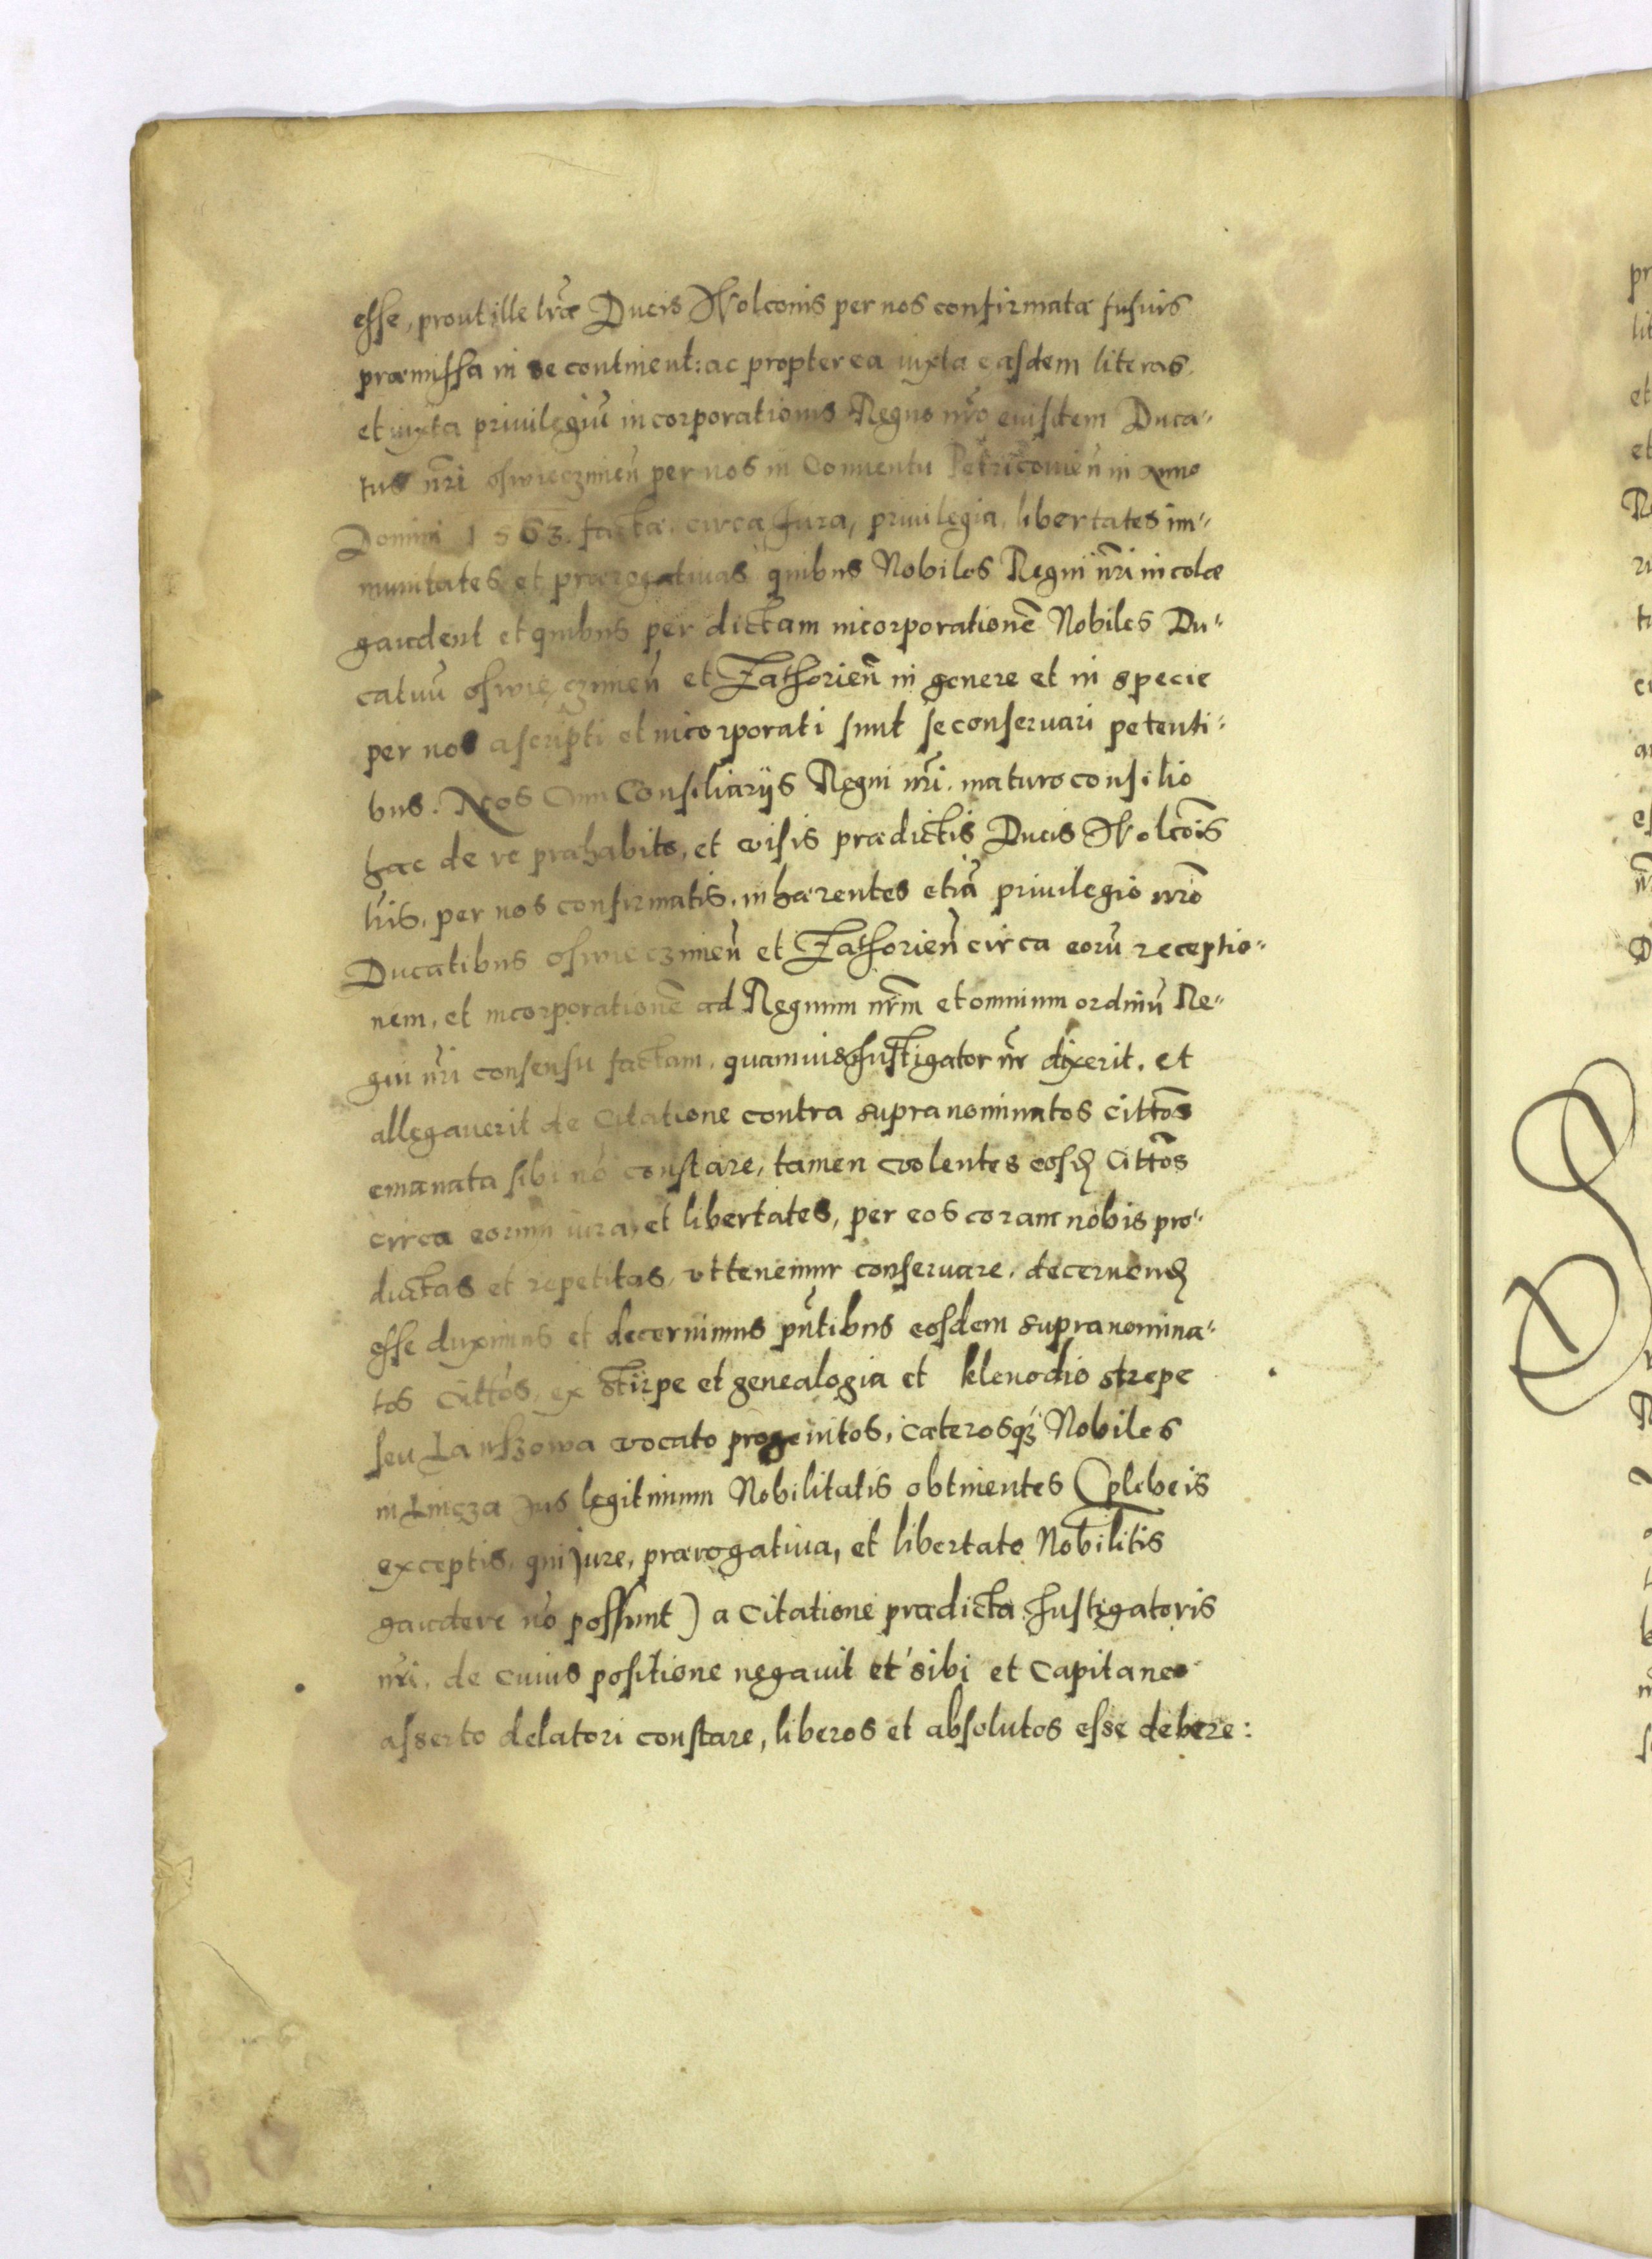 esse, prout ille lr̃æ Ducis Wolconis per nos confirmatæ fusius
præmissa in se continent: ac propterea iuxta easdem literas,
et iuxta priuilegiũ incorporationis Regno nr̃o eiusdem Duca-
tus nr̃i oswieczimeñ per nos in Conuentu Petricouieñ in Anno
Domini 1563. factæ, circa Jura, priuilegia, libertates im-
munitates et prærogatiuas quibus Nobiles Regni nr̃i incolæ
gaudent et quibus per dictam incorporationẽ Nobiles Du-
catuũ oswięczimeñ et Zathorieñ in genere et in specie
per nos ascripti et incorporati sunt se conseruari petenti-
bus. Nos Cum Consiliarijs Regni nr̃i. maturo consilio
hac de re præhabito, et visis prædictis Ducis Wolcõis
lr̃is, per nos confirmatis, inhærentes etiã priuilegio nr̃o
Ducatibus oswieczimeñ et Zathorieñ circa eorũ receptio-
nem, et incorporationẽ ad Regnum nr̃m et omnium ordinũ Re-
gni nr̃i consensu factam, quamuis Jnstigator nr̃ dixerit, et
allegauerit de Citatione contra supranominatos cittõs
emanata sibi nõ constare, tamen volentes eosd̃ Cittõs
circa eorum iura, et libertates, per eos coram nobis pro-
ductas et repetitas, vt tenemur conseruare, decernend̃
esse duximus et decernimus pñtibus eosdem supranomina-
tos Cittõs, ex stirpe et genealogia et klenodio strepe
seu Lawszowa vocato progenitos, cæterosq; Nobiles
in Lincza Jus legitimum Nobilitatis obtinentes (plebeis
exceptis, qui Jure, prærogatiua, et libertate Nobilitis
gaudere nõ possunt) a Citatione prædicta Jnstigatoris
nr̃i, de cuius positione negauit et sibi et Capitaneo
asserto delatori constare, liberos et absolutos esse debere: